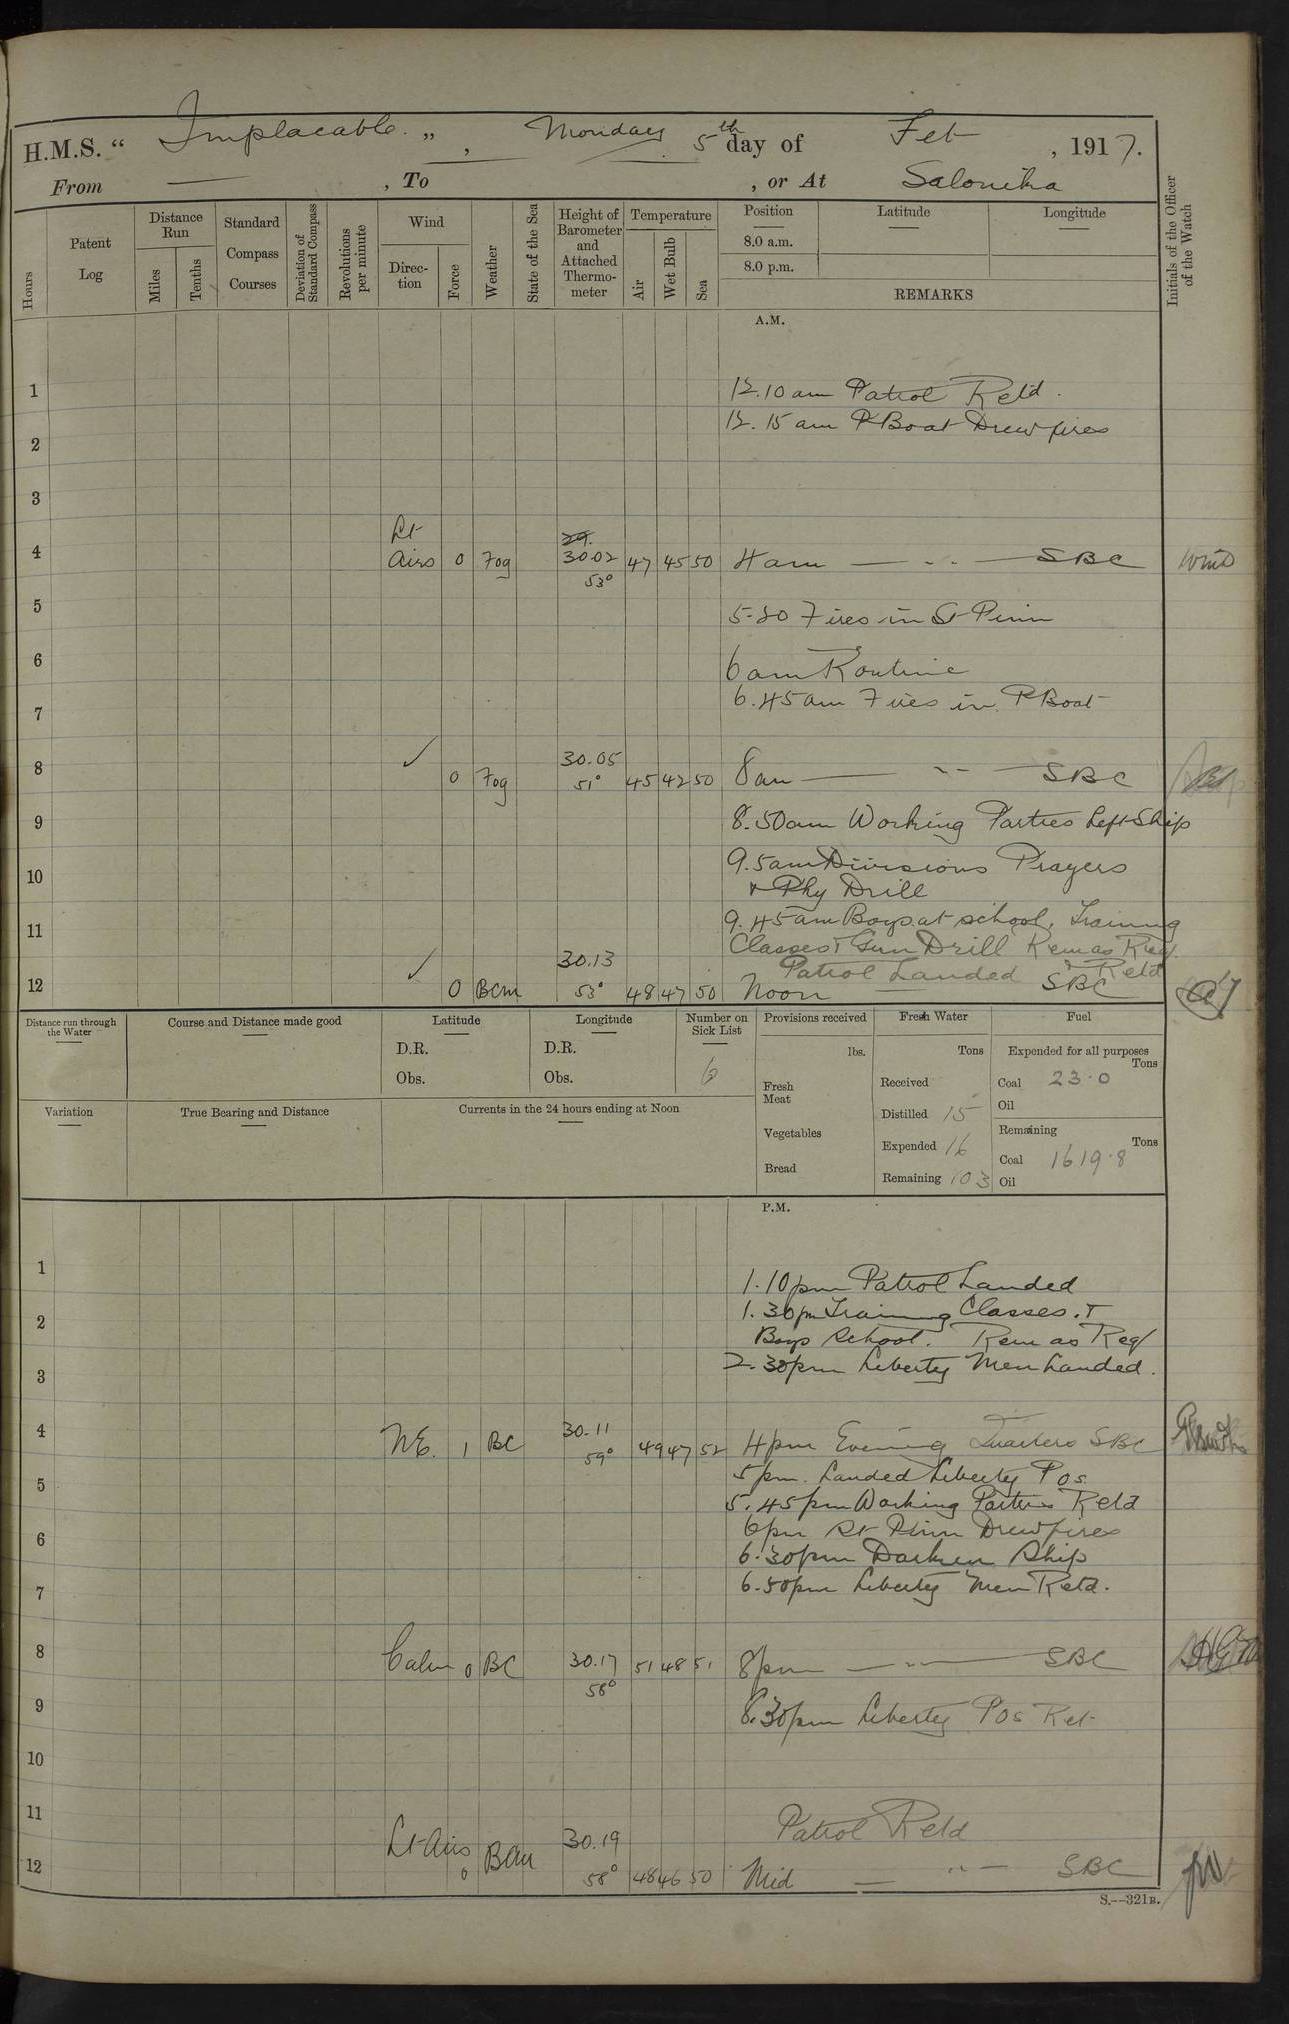 H.M.S. “ Implacable. ” , Monday 5th day of Feb , 1917.
From — , To , or At Salonika
Hours
Patent Log
Distance Run
Miles
Tenths
Standard Compass Courses
Deviation of Standard Compass
Revolutions per minute
Wind
Direction
Force
Weather
State of the Sea
Height of Barometer and Attached Thermometer
Temperature
Air
Wet Bulb
Sea
Position
8.0 a.m.
8.0 p.m.
Latitude
Longitude
REMARKS
Initials of the Officer of the Watch
A.M.
1 12.10 am Patrol Retd.
12.15 am P Boat Drew fires
2
3
Lt 29.
4 Airs 0 Fog 30.02 47 45 50 4 am — " — SBC
53°
5 Fires in St Pinn
6 6 am Routine
6.45 am Fires in P Boat
7
8 ✓ 0 Fog 30.05 51° 45 42 50 8 am — " — SBC
9 8.50 am Working Parties Left Ship
9.5 am Divisions Prayers
10 & Phy Drill
9.45 am Boys at school, Training
11 Classes & Gun Drill Rem as Req
30.13 Patrol Landed & Retd
12 ✓ 0 BCM 53° 48 47 50 Noon SBC
Distance run through the Water
Course and Distance made good
Latitude
D.R.
Obs.
Longitude
D.R.
Obs.
Number on Sick List
6
Provisions received
lbs.
Fresh Meat
Vegetables
Bread
Fresh Water
Tons
Received
Distilled 15
Expended 16
Remaining 103
Fuel
Expended for all purposes
Tons
Coal 23.0
Oil
Remaining
Tons
Coal 1619.8
Oil
Variation
True Bearing and Distance
Currents in the 24 hours ending at Noon
P.M.
1 1.10 pm Patrol Landed
1.30 pm Training Classes. &
2 Boys School. Rem as Req
2.30 pm Liberty Men Landed.
3
4 NE. 1 BC 30.11 59° 49 47 52 4 pm Evening Quarters SBC
5 pm. Landed Liberty POs
5 5.45 pm Working Parties Retd
6 pm St Pinn Drew fires
6 6.30 pm Darken Ship
6.50 pm Liberty Men Retd.
7
8 Calm 0 BC 30.17 51 48 51 8 pm — " — SBC
58°
9 8.30 pm Liberty POs Ret
10
11 Patrol Retd
Lt Airs 30.19
12 0 BCM 58° 48 46 50 Mid — " — SBC
S.—321B.